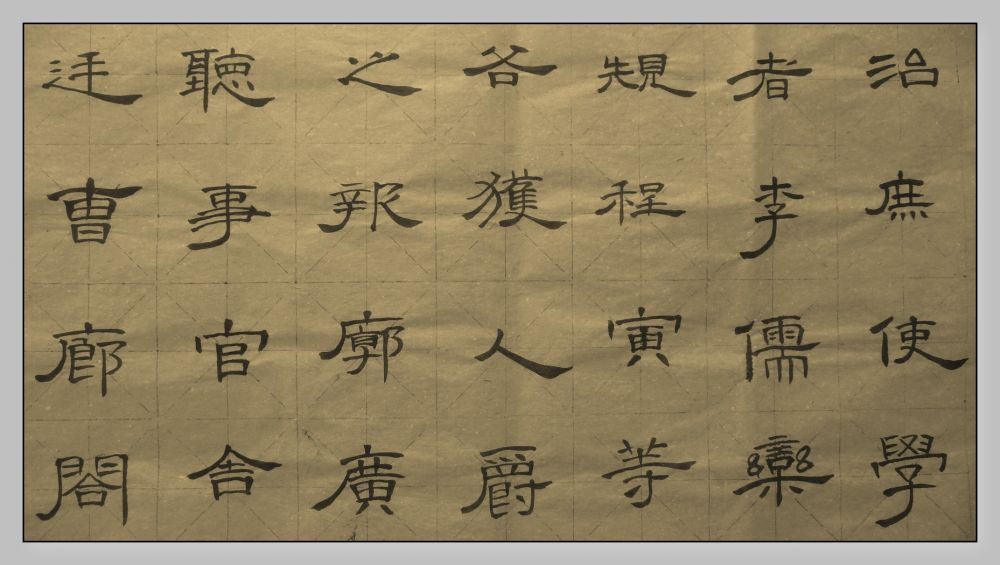 治庶使學
者李儒欒
規程寅等
各獲人爵
之報廓廣
聽事官舍
廷曹廊閣